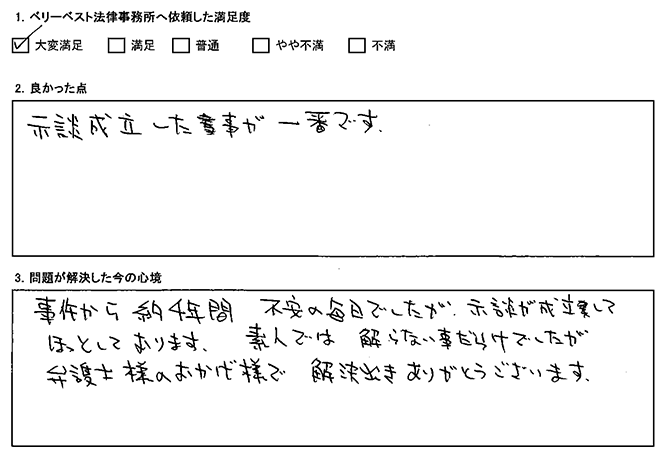 1. ベリーベスト法律事務所へ依頼した満足度
大変満足 満足 普通 やや不満 不満
2. 良かった点
示談成立した事が 一番です.
3. 問題が解決した今の心境
事件から 約4年間 不安の毎日でしたが、示談が成立して
ほっとしております. 素人では 解らない事だらけでしたが
弁護士様のおかげ様で 解決出き ありがとうございます.